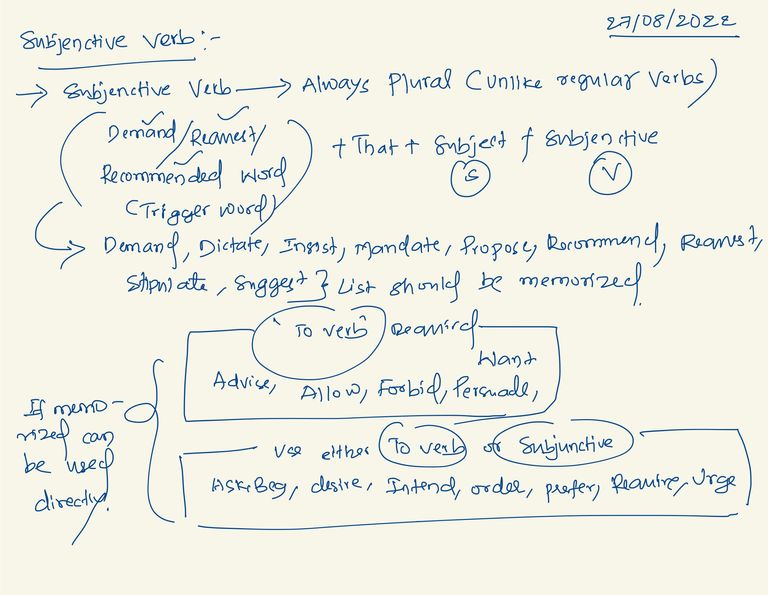 27/08/2022
Subjenctive verb:-
→ Subjenctive Verb → Always Plural (unlike regular verbs)
(Demand/Request/
Recommended Word
(Trigger word)) + That + Subject + Subjenctive
S V
→ Demand, Dictate, Insist, Mandate, Propose, Recommend, Request,
Stipulate, Suggest } List should be memorized.
"To verb" Required
Want
Advise, Allow, Forbid, Persuade,
If memo-
rized can
be used
directly.
Use either To verb or Subjunctive
Ask, Beg, desire, Intend, order, prefer, Require, Urge